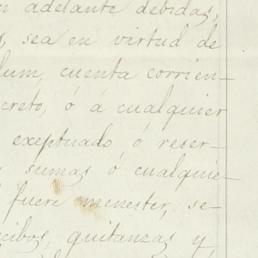 adelante debidas,
sea en virtud de
cuenta corrien-
ó á cualquier
exeptuado, ó reser-
sumas ó cualquie-
fuere menester, se-
quitanzas y